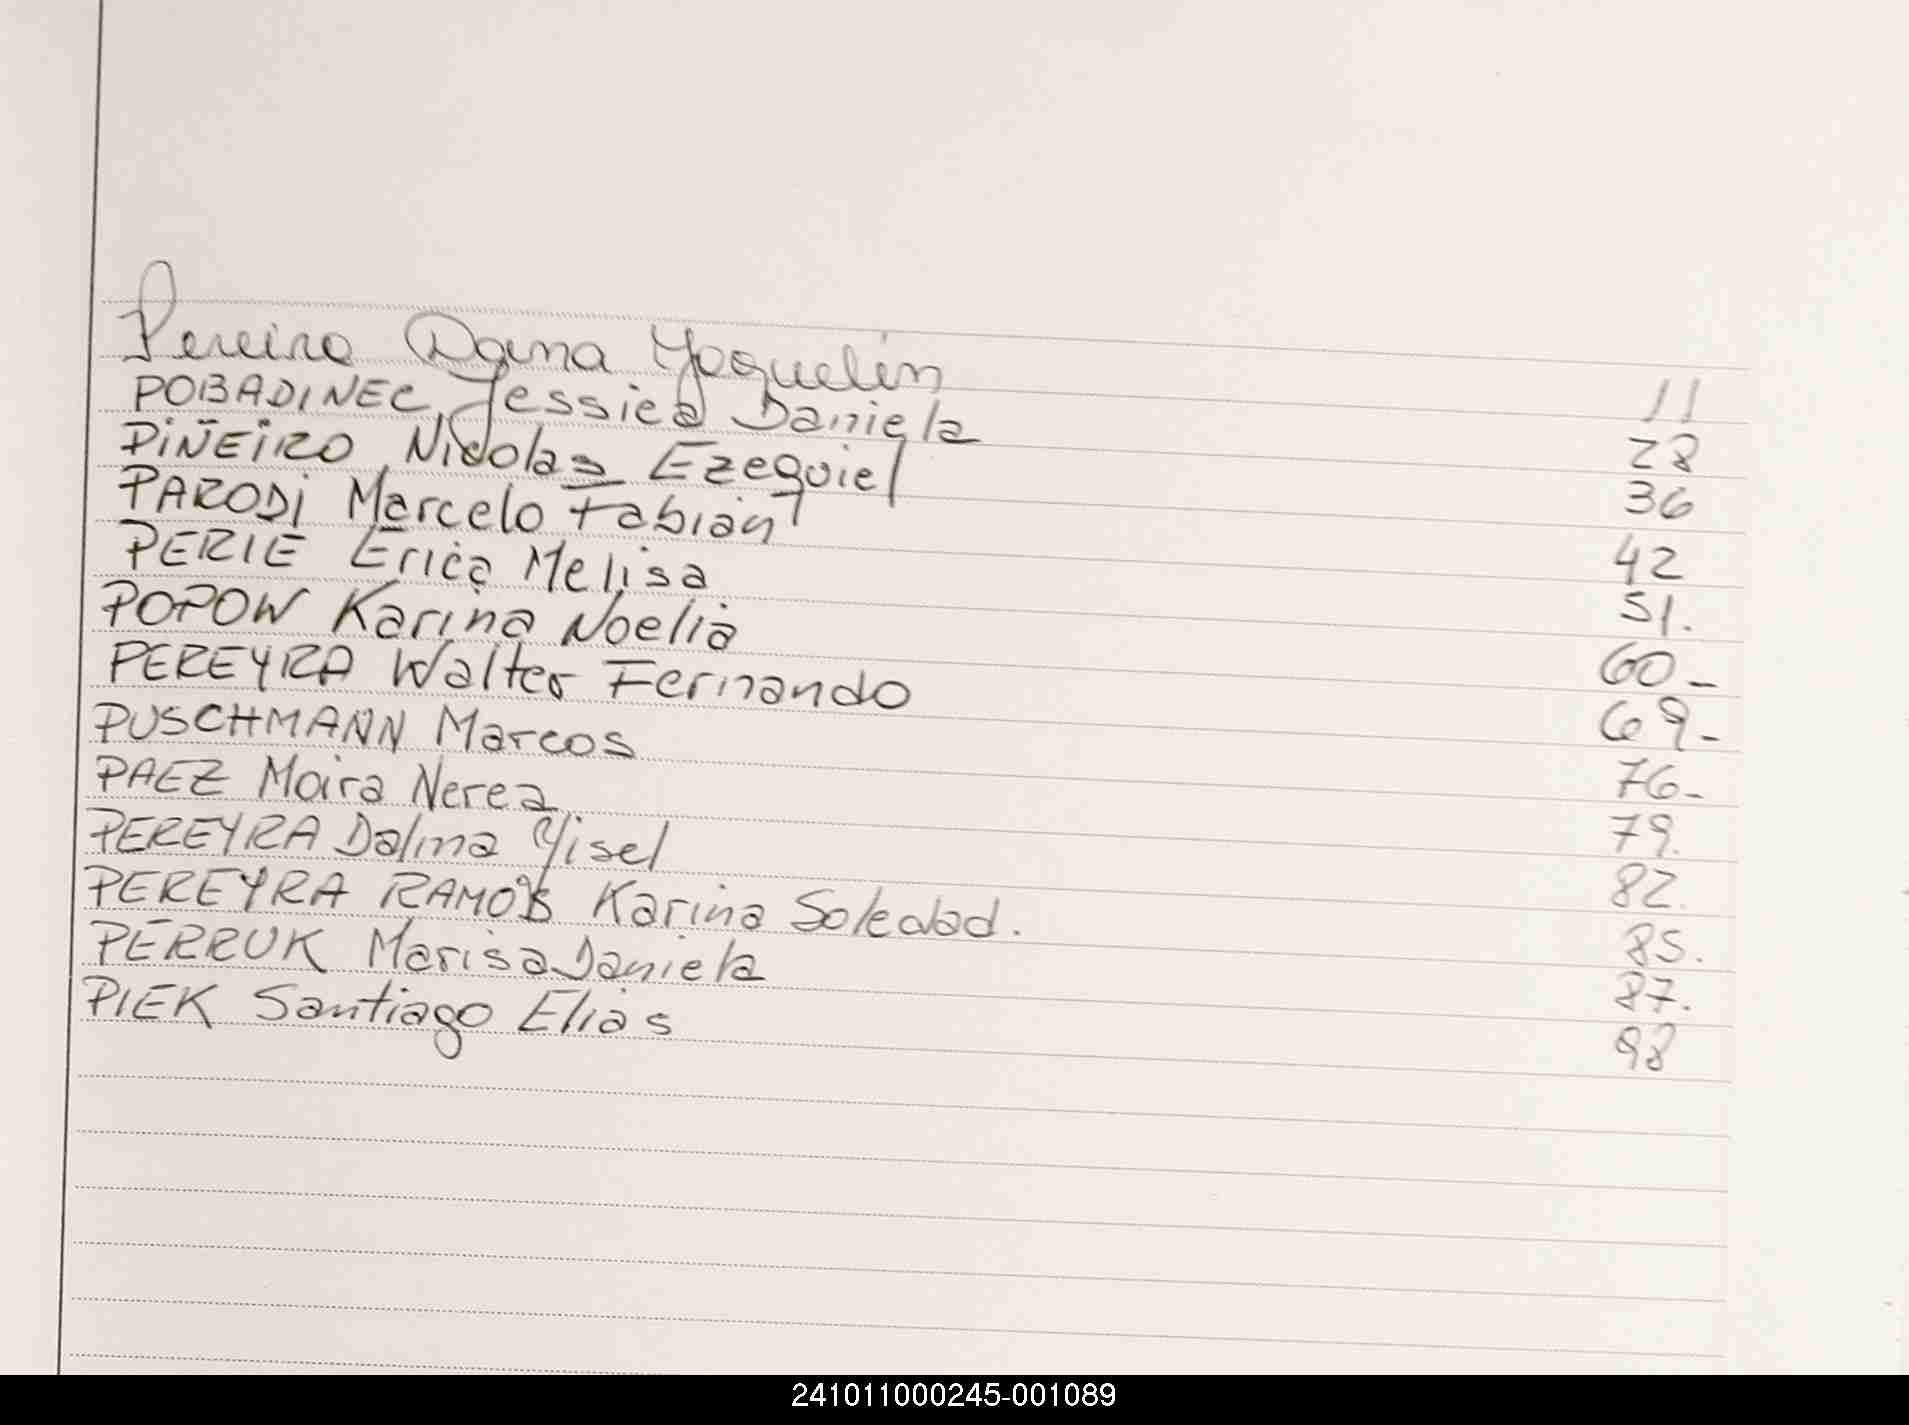 Pereira Daina Yaquelin 11
POBADINEC, Jessica Daniela 28
PIÑEIRO Nicolas Ezequiel 36
PARODI Marcelo Fabian 42
PERIE Erica Melisa 51.
POPOW Karina Noelia 60-
PEREYRA Walter Fernando 69-
PUSCHMANN Marcos 76-
PAEZ Moira Nerea 79.
PEREYRA Dalma Yisel 82.
PEREYRA RAMOS Karina Soledad. 85.
PERRUK Marisa Daniela 87.
PIEK Santiago Elias 98
241011000245-001089